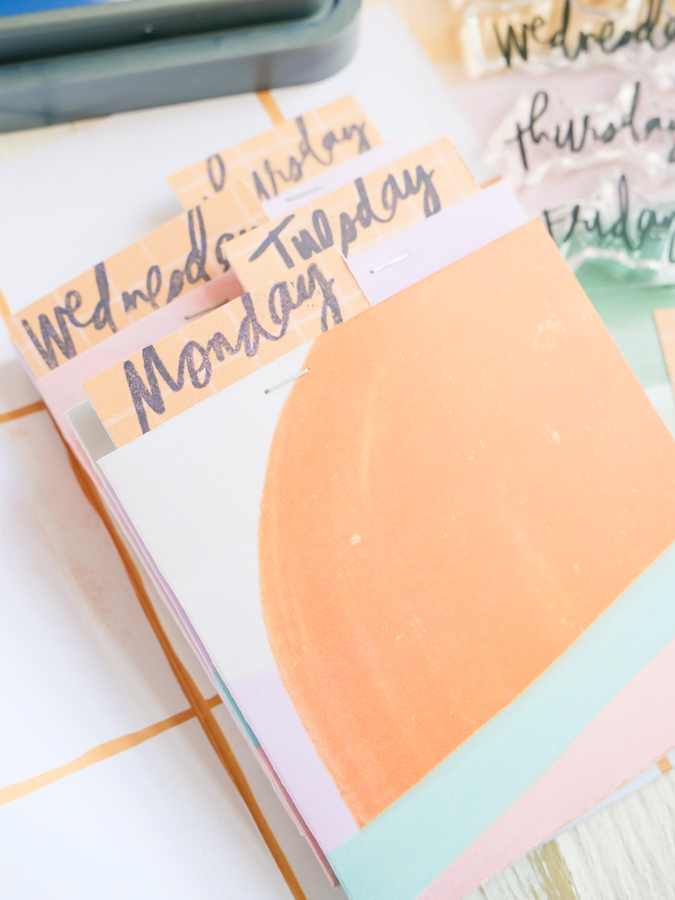 Wednesday
Thursday
Friday
Thursday
Tuesday
Wednesday
Monday